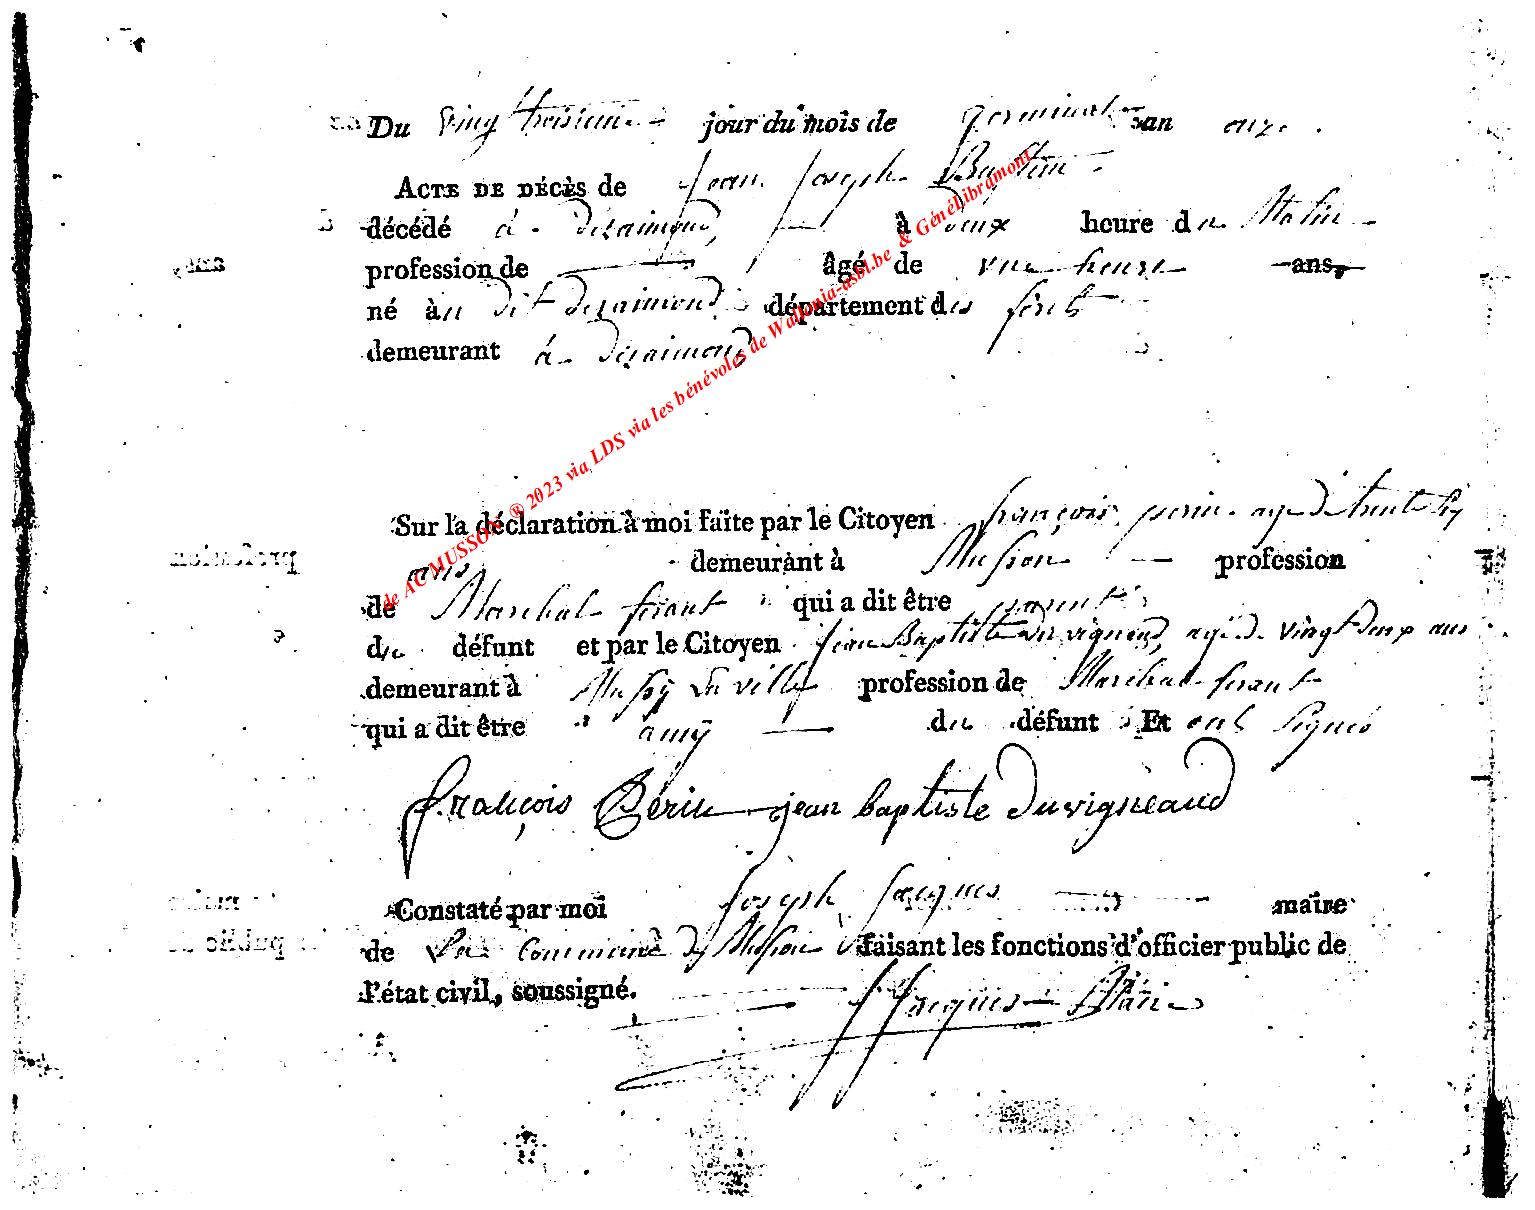 Du vingt troisieme jour du mois de germinal an onze.
ACTE DE DÉCÈS de Jean Joseph Baptiste
décédé à deraimond, à deux heure du Matin
profession de âgé de une heure ans,
né àu dit deraimond département des forêts
demeurant à deraimond
de ACMUSSON ® 2023 via LDS via les bénévoles de Wallonia-asbl.be & GénéLibramont
Sur la déclaration à moi faite par le Citoyen françois perin agé de trente six
ans demeurant à Musson profession
de Marchal ferant qui a dit être parent
du défunt et par le Citoyen jean Baptiste duvigneaud, agé de vingt deux ans
demeurant à Mussÿ La ville profession de Marchal ferant
qui a dit être amÿ du défunt Et ont signés
françois Perin jean baptiste Duvigneaud
Constaté par moi Joseph Jacques maire
de La commune de Musson faisant les fonctions d'officier public de
l'état civil, soussigné. J Jacques Maire